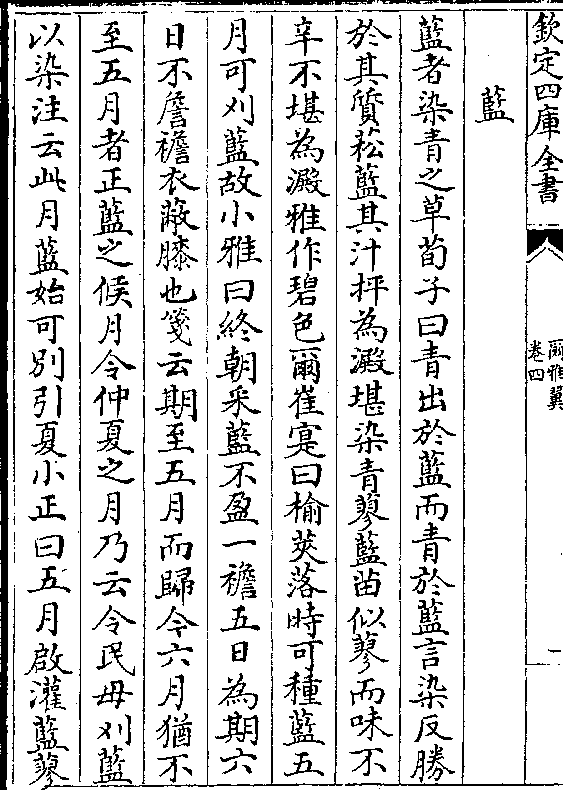 欽定四庫全書
爾雅翼
卷四
一
藍
藍者染青之草荀子曰青出於藍而青於藍言染反勝
於其質菘藍其汁抨為澱堪染青蓼藍苗似蓼而味不
辛不堪為澱雅作碧色爾崔寔曰榆莢落時可種藍五
月可刈藍故小雅曰終朝采藍不盈一襜五日為期六
日不詹襜衣蔽膝也箋云期至五月而歸今六月猶不
至五月者正藍之候月令仲夏之月乃云令民毋刈藍
以染注云此月藍始可別引夏小正曰五月啟灌藍蓼